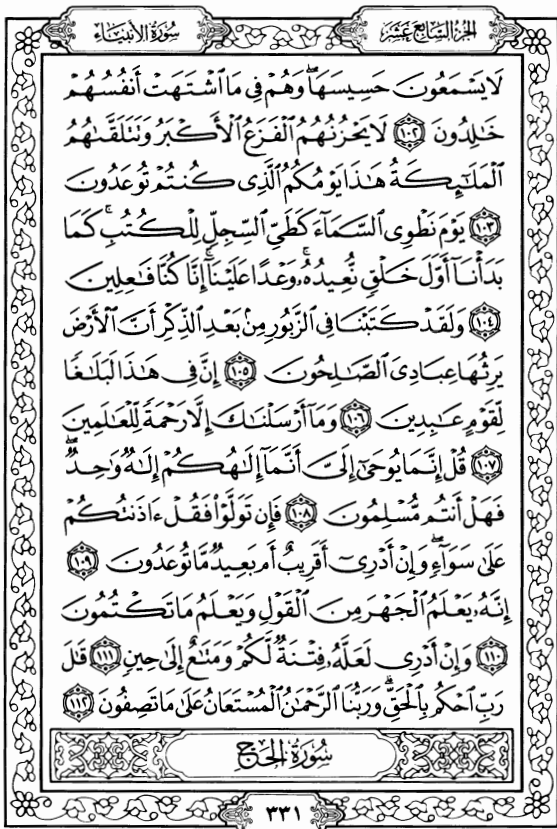 الجزء السابع عشر
سورة الأنبياء
لَا يَسْمَعُونَ حَسِيسَهَا ۖ وَهُمْ فِى مَا ٱشْتَهَتْ أَنفُسُهُمْ
خَـٰلِدُونَ ١٠٢ لَا يَحْزُنُهُمُ ٱلْفَزَعُ ٱلْأَكْبَرُ وَتَتَلَقَّىٰهُمُ
ٱلْمَلَـٰٓئِكَةُ هَـٰذَا يَوْمُكُمُ ٱلَّذِى كُنتُمْ تُوعَدُونَ
١٠٣ يَوْمَ نَطْوِى ٱلسَّمَآءَ كَطَىِّ ٱلسِّجِلِّ لِلْكُتُبِ ۚ كَمَا
بَدَأْنَآ أَوَّلَ خَلْقٍ نُّعِيدُهُۥ ۚ وَعْدًا عَلَيْنَآ ۚ إِنَّا كُنَّا فَـٰعِلِينَ
١٠٤ وَلَقَدْ كَتَبْنَا فِى ٱلزَّبُورِ مِنۢ بَعْدِ ٱلذِّكْرِ أَنَّ ٱلْأَرْضَ
يَرِثُهَا عِبَادِىَ ٱلصَّـٰلِحُونَ ١٠٥ إِنَّ فِى هَـٰذَا لَبَلَـٰغًا
لِّقَوْمٍ عَـٰبِدِينَ ١٠٦ وَمَآ أَرْسَلْنَـٰكَ إِلَّا رَحْمَةً لِّلْعَـٰلَمِينَ
١٠٧ قُلْ إِنَّمَا يُوحَىٰٓ إِلَىَّ أَنَّمَآ إِلَـٰهُكُمْ إِلَـٰهٌ وَٰحِدٌ ۖ
فَهَلْ أَنتُم مُّسْلِمُونَ ١٠٨ فَإِن تَوَلَّوْا۟ فَقُلْ ءَاذَنتُكُمْ
عَلَىٰ سَوَآءٍ ۖ وَإِنْ أَدْرِىٓ أَقَرِيبٌ أَم بَعِيدٌ مَّا تُوعَدُونَ ١٠٩
إِنَّهُۥ يَعْلَمُ ٱلْجَهْرَ مِنَ ٱلْقَوْلِ وَيَعْلَمُ مَا تَكْتُمُونَ
١١٠ وَإِنْ أَدْرِى لَعَلَّهُۥ فِتْنَةٌ لَّكُمْ وَمَتَـٰعٌ إِلَىٰ حِينٍ ١١١ قَـٰلَ
رَبِّ ٱحْكُم بِٱلْحَقِّ ۗ وَرَبُّنَا ٱلرَّحْمَـٰنُ ٱلْمُسْتَعَانُ عَلَىٰ مَا تَصِفُونَ ١١٢
سُورَةُ الحَجّ
٣٣١